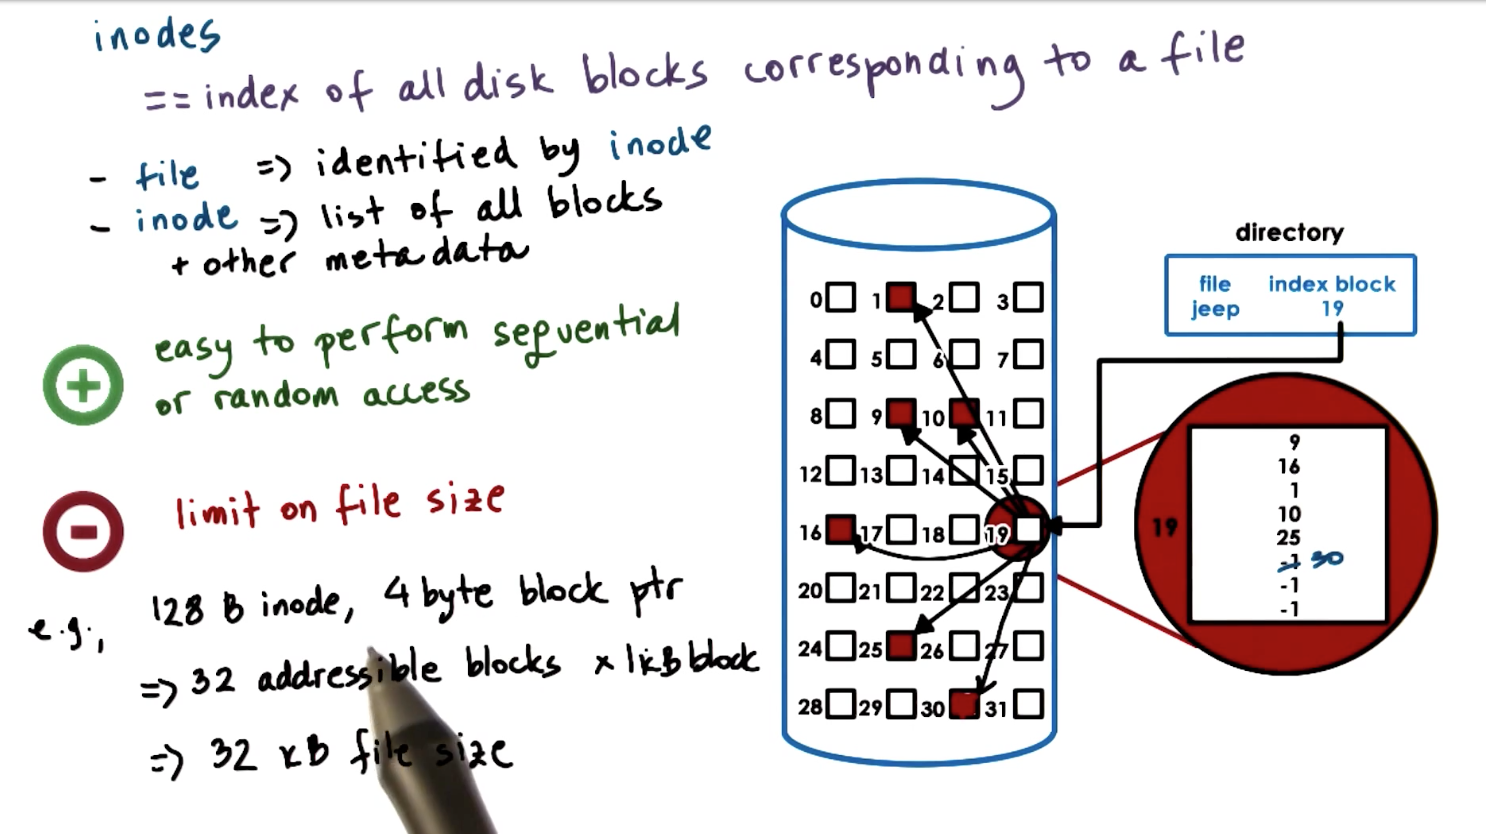 inodes
== index of all disk blocks corresponding to a file
- file => identified by inode
- inode => list of all blocks
+ other metadata
+
easy to perform sequential
or random access
-
limit on file size
e.g.,
128 B inode, 4 byte block ptr
=> 32 addressible blocks x 1kB block
=> 32 kB file size
0 1 2 3
4 5 6 7
8 9 10 11
12 13 14 15
16 17 18 19
20 21 22 23
24 25 26 27
28 29 30 31
directory
file index block
jeep 19
19
9
16
1
10
25
-1 30
-1
-1